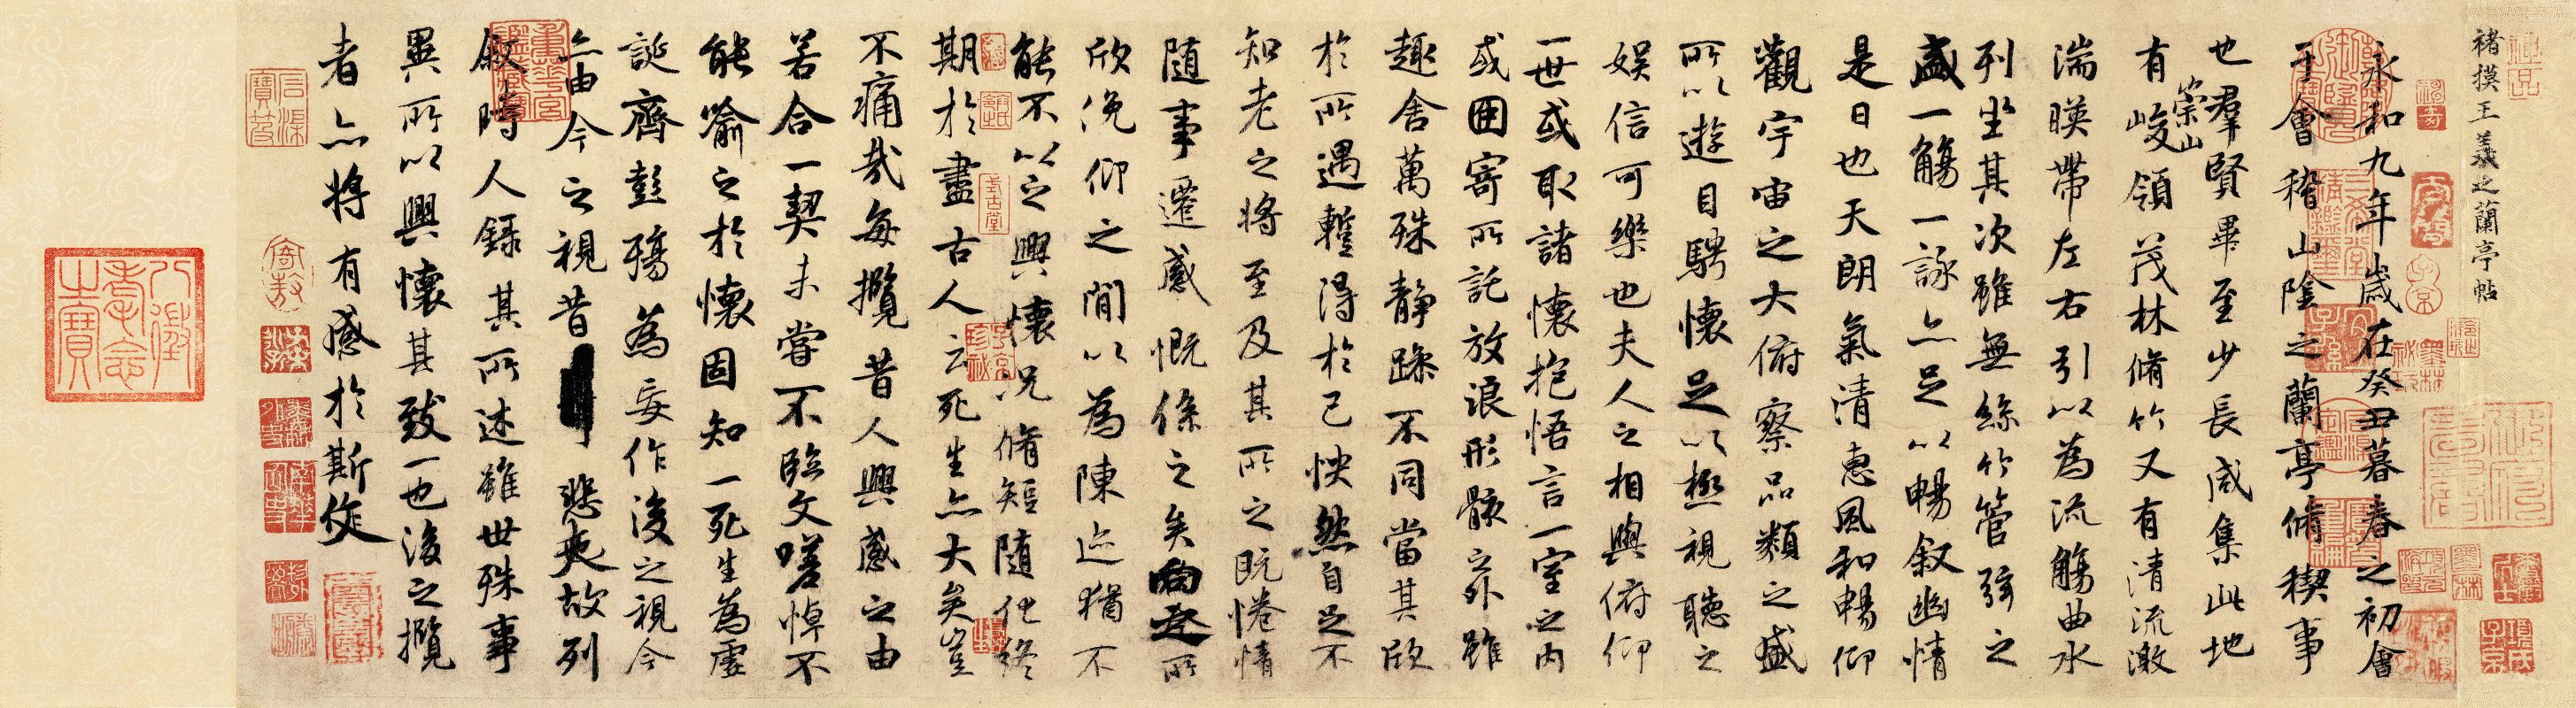 褚摸王羲之蘭亭帖
永和九年歲在癸丑暮春之初會
于會稽山陰之蘭亭脩稧事
也羣賢畢至少長咸集此地
有崇山峻領茂林脩竹又有清流激
湍暎帶左右引以為流觴曲水
列坐其次雖無絲竹管弦之
盛一觴一詠亦足以暢敘幽情
是日也天朗氣清惠風和暢仰
觀宇宙之大俯察品類之盛
所以遊目騁懷足以極視聽之
娛信可樂也夫人之相與俯仰
一世或取諸懷抱悟言一室之內
或因寄所託放浪形骸之外雖
趣舍萬殊靜躁不同當其欣
於所遇蹔得於己怏然自足不
知老之將至及其所之既惓情
隨事遷感慨係之矣向之所
欣俛仰之閒以為陳迹猶不
能不以之興懷況脩短隨化終
期於盡古人云死生亦大矣豈
不痛哉每攬昔人興感之由
若合一契未嘗不臨文嗟悼不
能喻之於懷固知一死生為虛
誕齊彭殤為妄作後之視今
亦由今之視昔悲夫故列
敘時人錄其所述雖世殊事
異所以興懷其致一也後之攬
者亦將有感於斯文
八徵耄念之寶